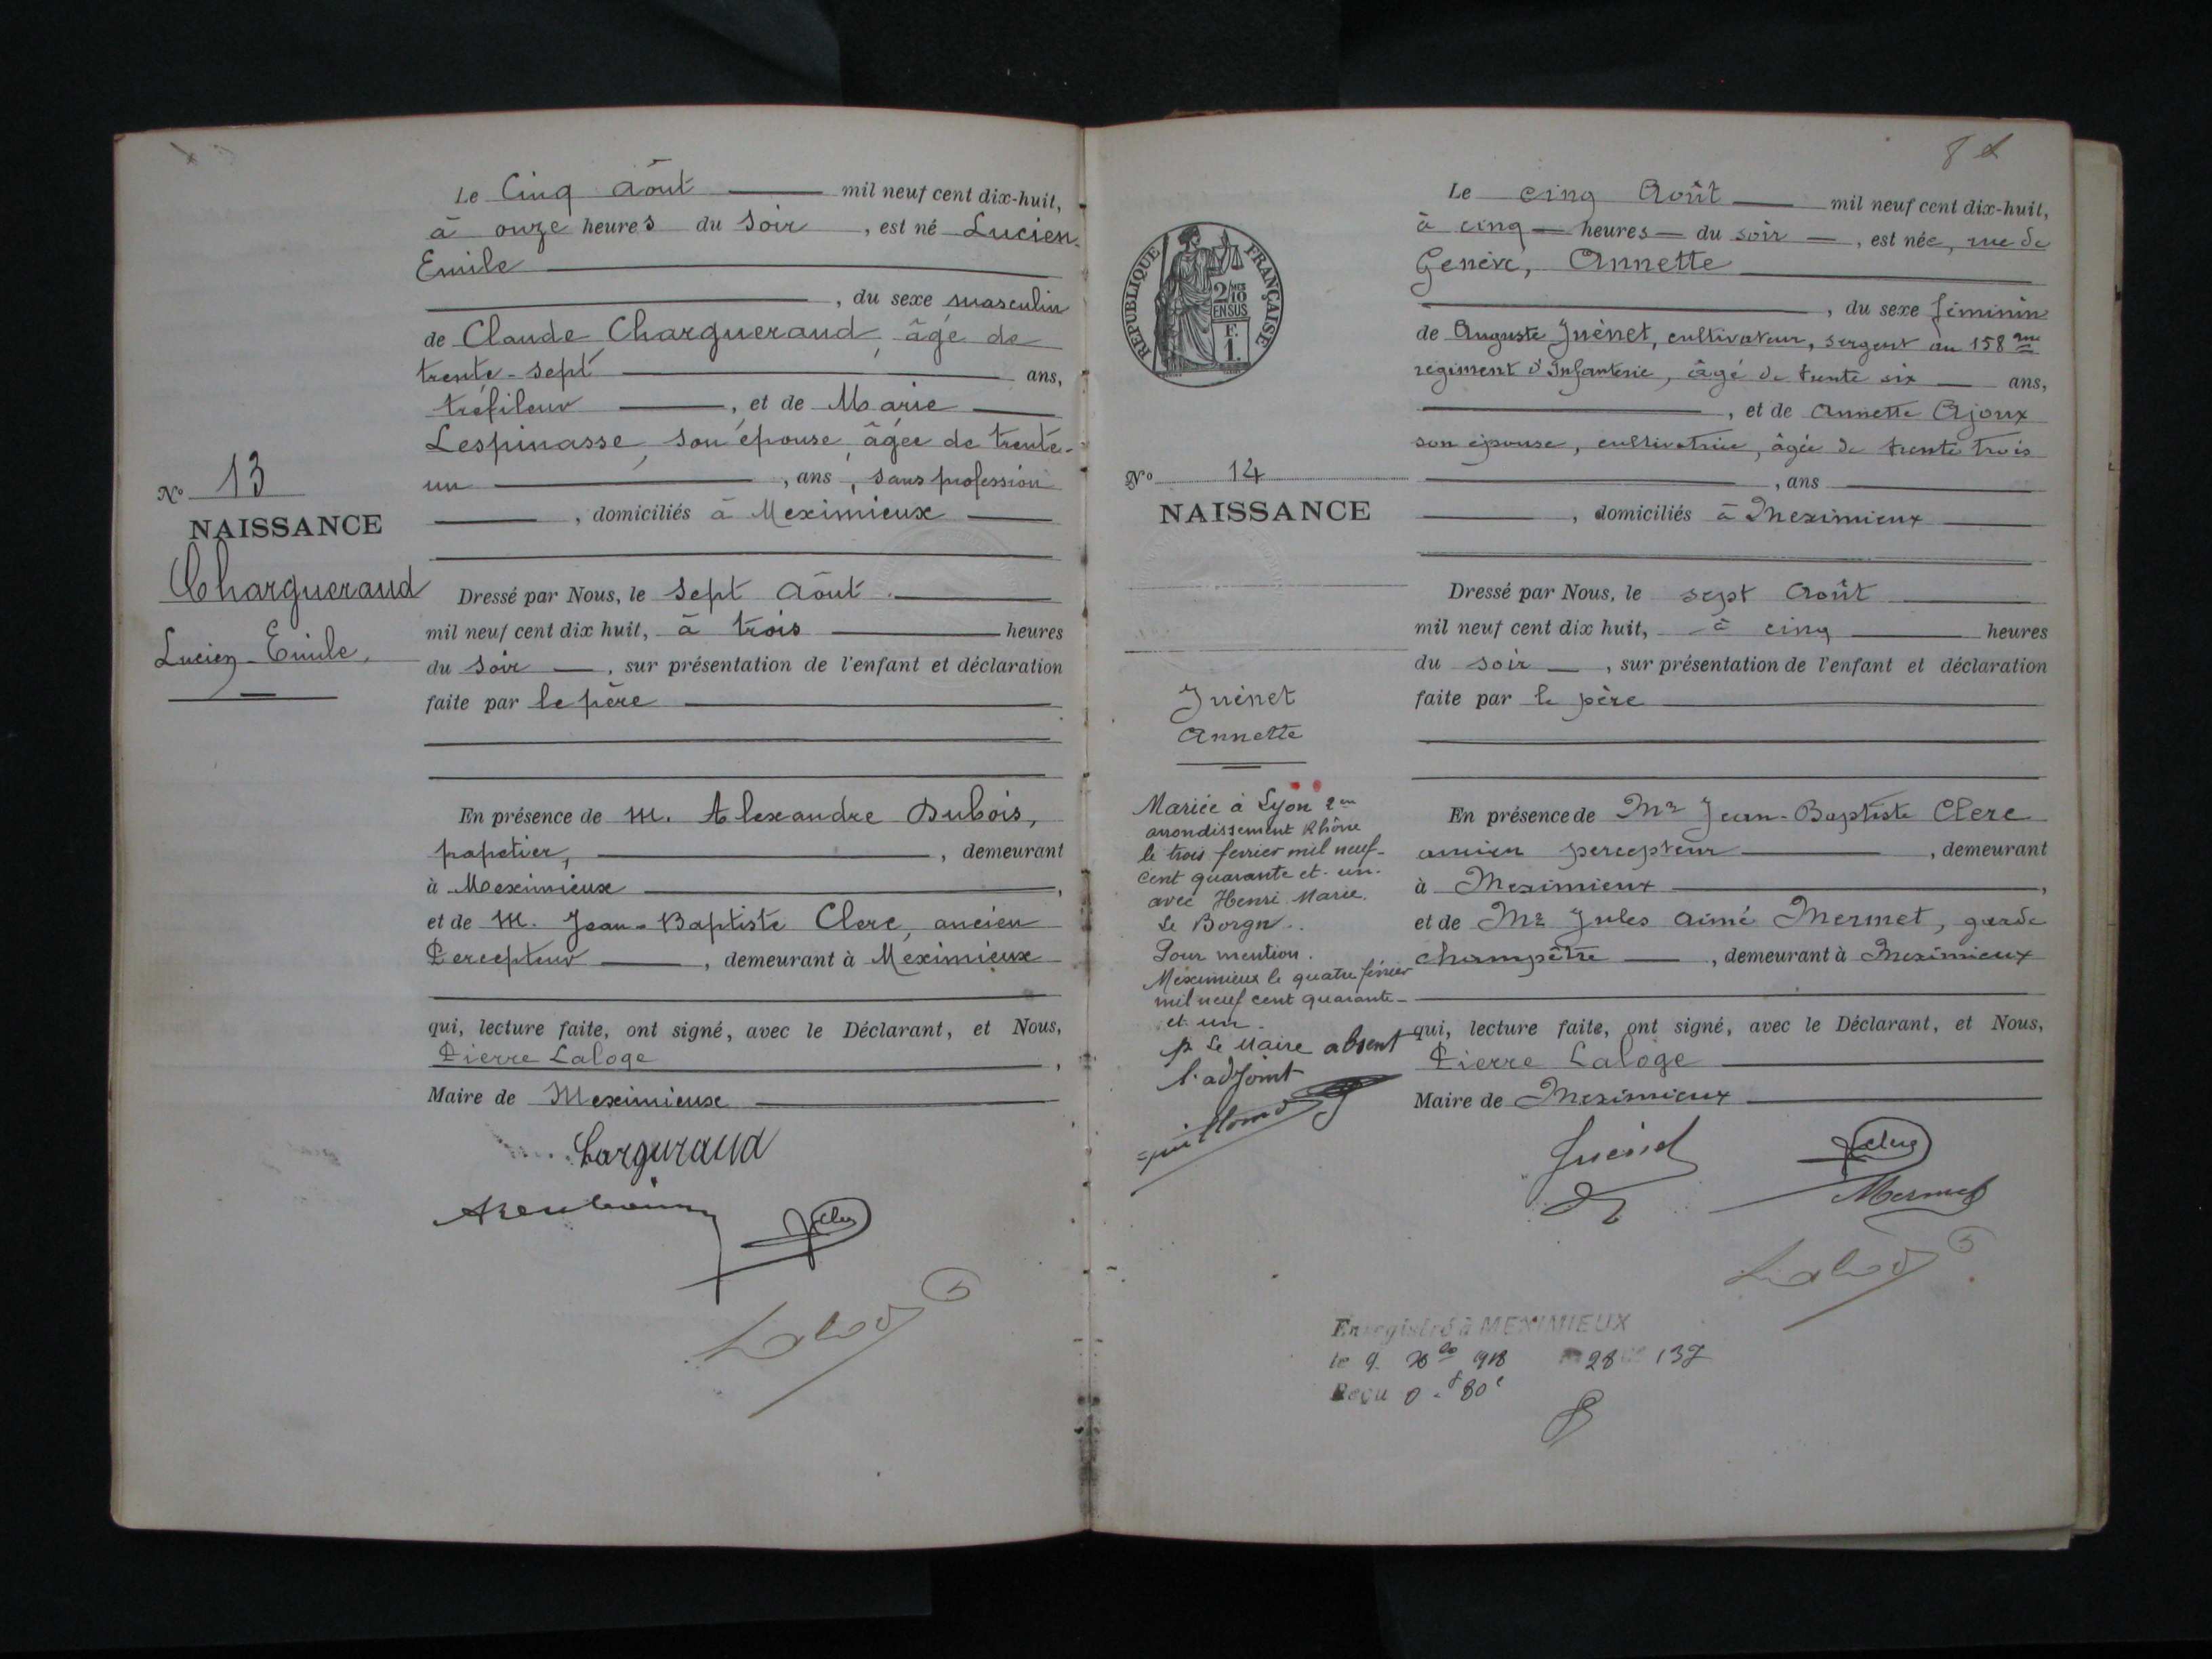 Le Cinq Août mil neuf cent dix-huit,
à onze heures du soir, est né Lucien
Emile
, du sexe masculin
de Claude Chargueraud, âgé de
trente-sept ans,
tréfileur, et de Marie
Lespinasse, son épouse, âgée de trente-
un, ans, sans profession
, domiciliés à Meximieux
No 13
NAISSANCE
Chargueraud
Lucien Emile.
Dressé par Nous, le sept Août
mil neuf cent dix huit, à trois heures
du soir, sur présentation de l'enfant et déclaration
faite par le père
En présence de M. Alexandre Dubois,
papetier, , demeurant
à Meximieux,
et de M. Jean-Baptiste Clerc, ancien
Percepteur, demeurant à Meximieux
qui, lecture faite, ont signé, avec le Déclarant, et Nous,
Pierre Laloge,
Maire de Meximieux
Le cinq Août mil neuf cent dix-huit,
à cinq heures du soir, est née, rue de
Genève, Annette
, du sexe féminin
de Auguste Juénet, cultivateur, sergent au 158me
régiment d'Infanterie, âgé de trente six ans,
, et de Annette Ajoux
son épouse, cultivatrice, âgée de trente trois
, ans
, domiciliés à Meximieux
RÉPUBLIQUE FRANÇAISE
2/10 EN SUS
F. 1.
No 14
NAISSANCE
Juénet
Annette
Mariée à Lyon 2em
arrondissement Rhône
le trois fevrier mil neuf-
cent quarante et un.
avec Henri Marie.
Le Borgn..
Pour mention.
Meximieux le quatre février
mil neuf cent quarante-
et un.
p. Le Maire absent
l'adjoint
Dressé par Nous, le sept Août
mil neuf cent dix huit, à cinq heures
du soir, sur présentation de l'enfant et déclaration
faite par le père
En présence de Mr Jean-Baptiste Clerc
ancien percepteur, demeurant
à Meximieux,
et de Mr Jules Aimé Mermet, garde
champêtre, demeurant à Meximieux
qui, lecture faite, ont signé, avec le Déclarant, et Nous,
Pierre Laloge
Maire de Meximieux
Juénet
Mermet
Enregistré à MEXIMIEUX
le 9. 918 28 137
Reçu 0.f 80c